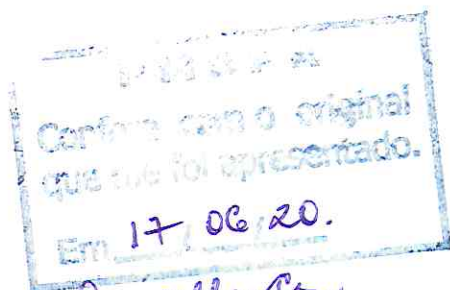 Confere com o original
que me foi apresentado.
Em 17/06/20.